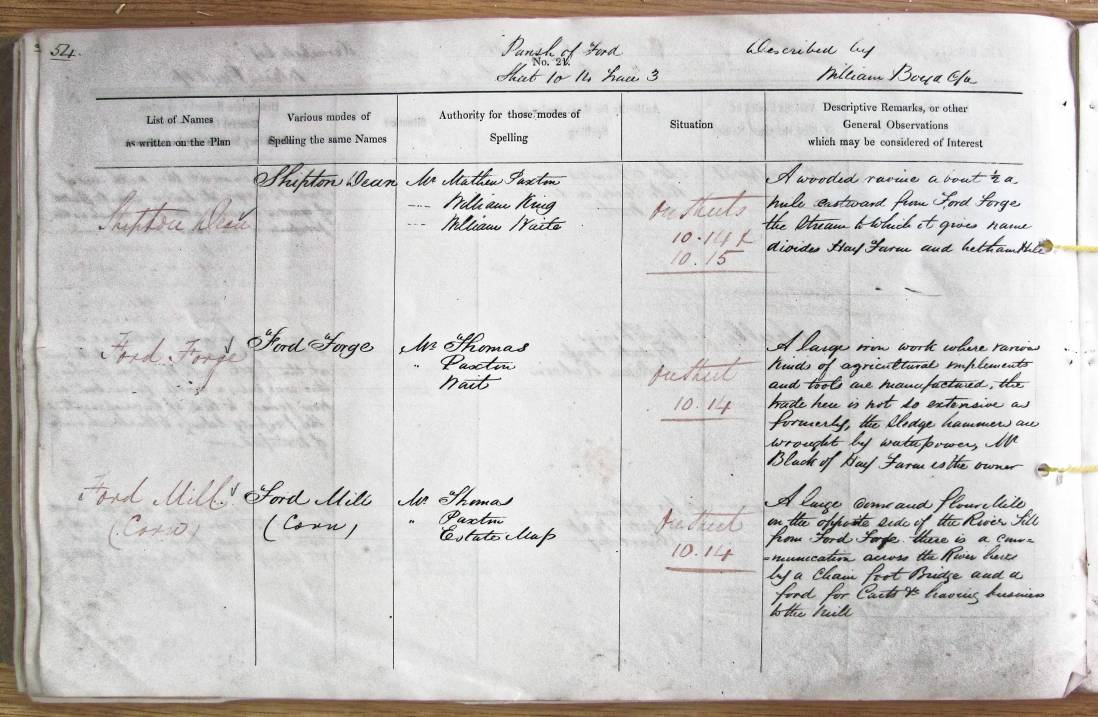 54.
Parish of Ford
No. 21.
Sheet 10 14 Trace 3
Described by
William Boyd C/a
List of Names
as written on the Plan
Various modes of
Spelling the same Names
Authority for those modes of
Spelling
Situation
Descriptive Remarks, or other
General Observations
which may be considered of Interest
Shipton Dean
Shipton Dean
Mr Mathew Paxton
---- William King
--- William Waite
On Sheets
10.14 &
10.15
A wooded ravine about ½ a
mile eastward from Ford Forge
the Stream to which it gives name
divides Hay Farm and Letham Hill
Ford Forge
Ford Forge
Mr Thomas
" Paxton
Wait
On Sheet
10.14
A large iron work where various
kinds of agricultural implements
and tools are manufactured, the
trade here is not so extensive as
formerly, the Sledge hammer are
wrought by waterpower, Mr
Black of Hay Farm is the owner
Ford Mill
(Corn)
Ford Mill
(Corn)
Mr Thomas
" Paxton
Estate Map
On Sheet
10.14
A large Corn and flour Mill
on the opposite side of the River Till
from Ford Forge there is a com=
=munication across the River here
by a Chain foot Bridge and a
ford for Carts &c having business
to the Mill